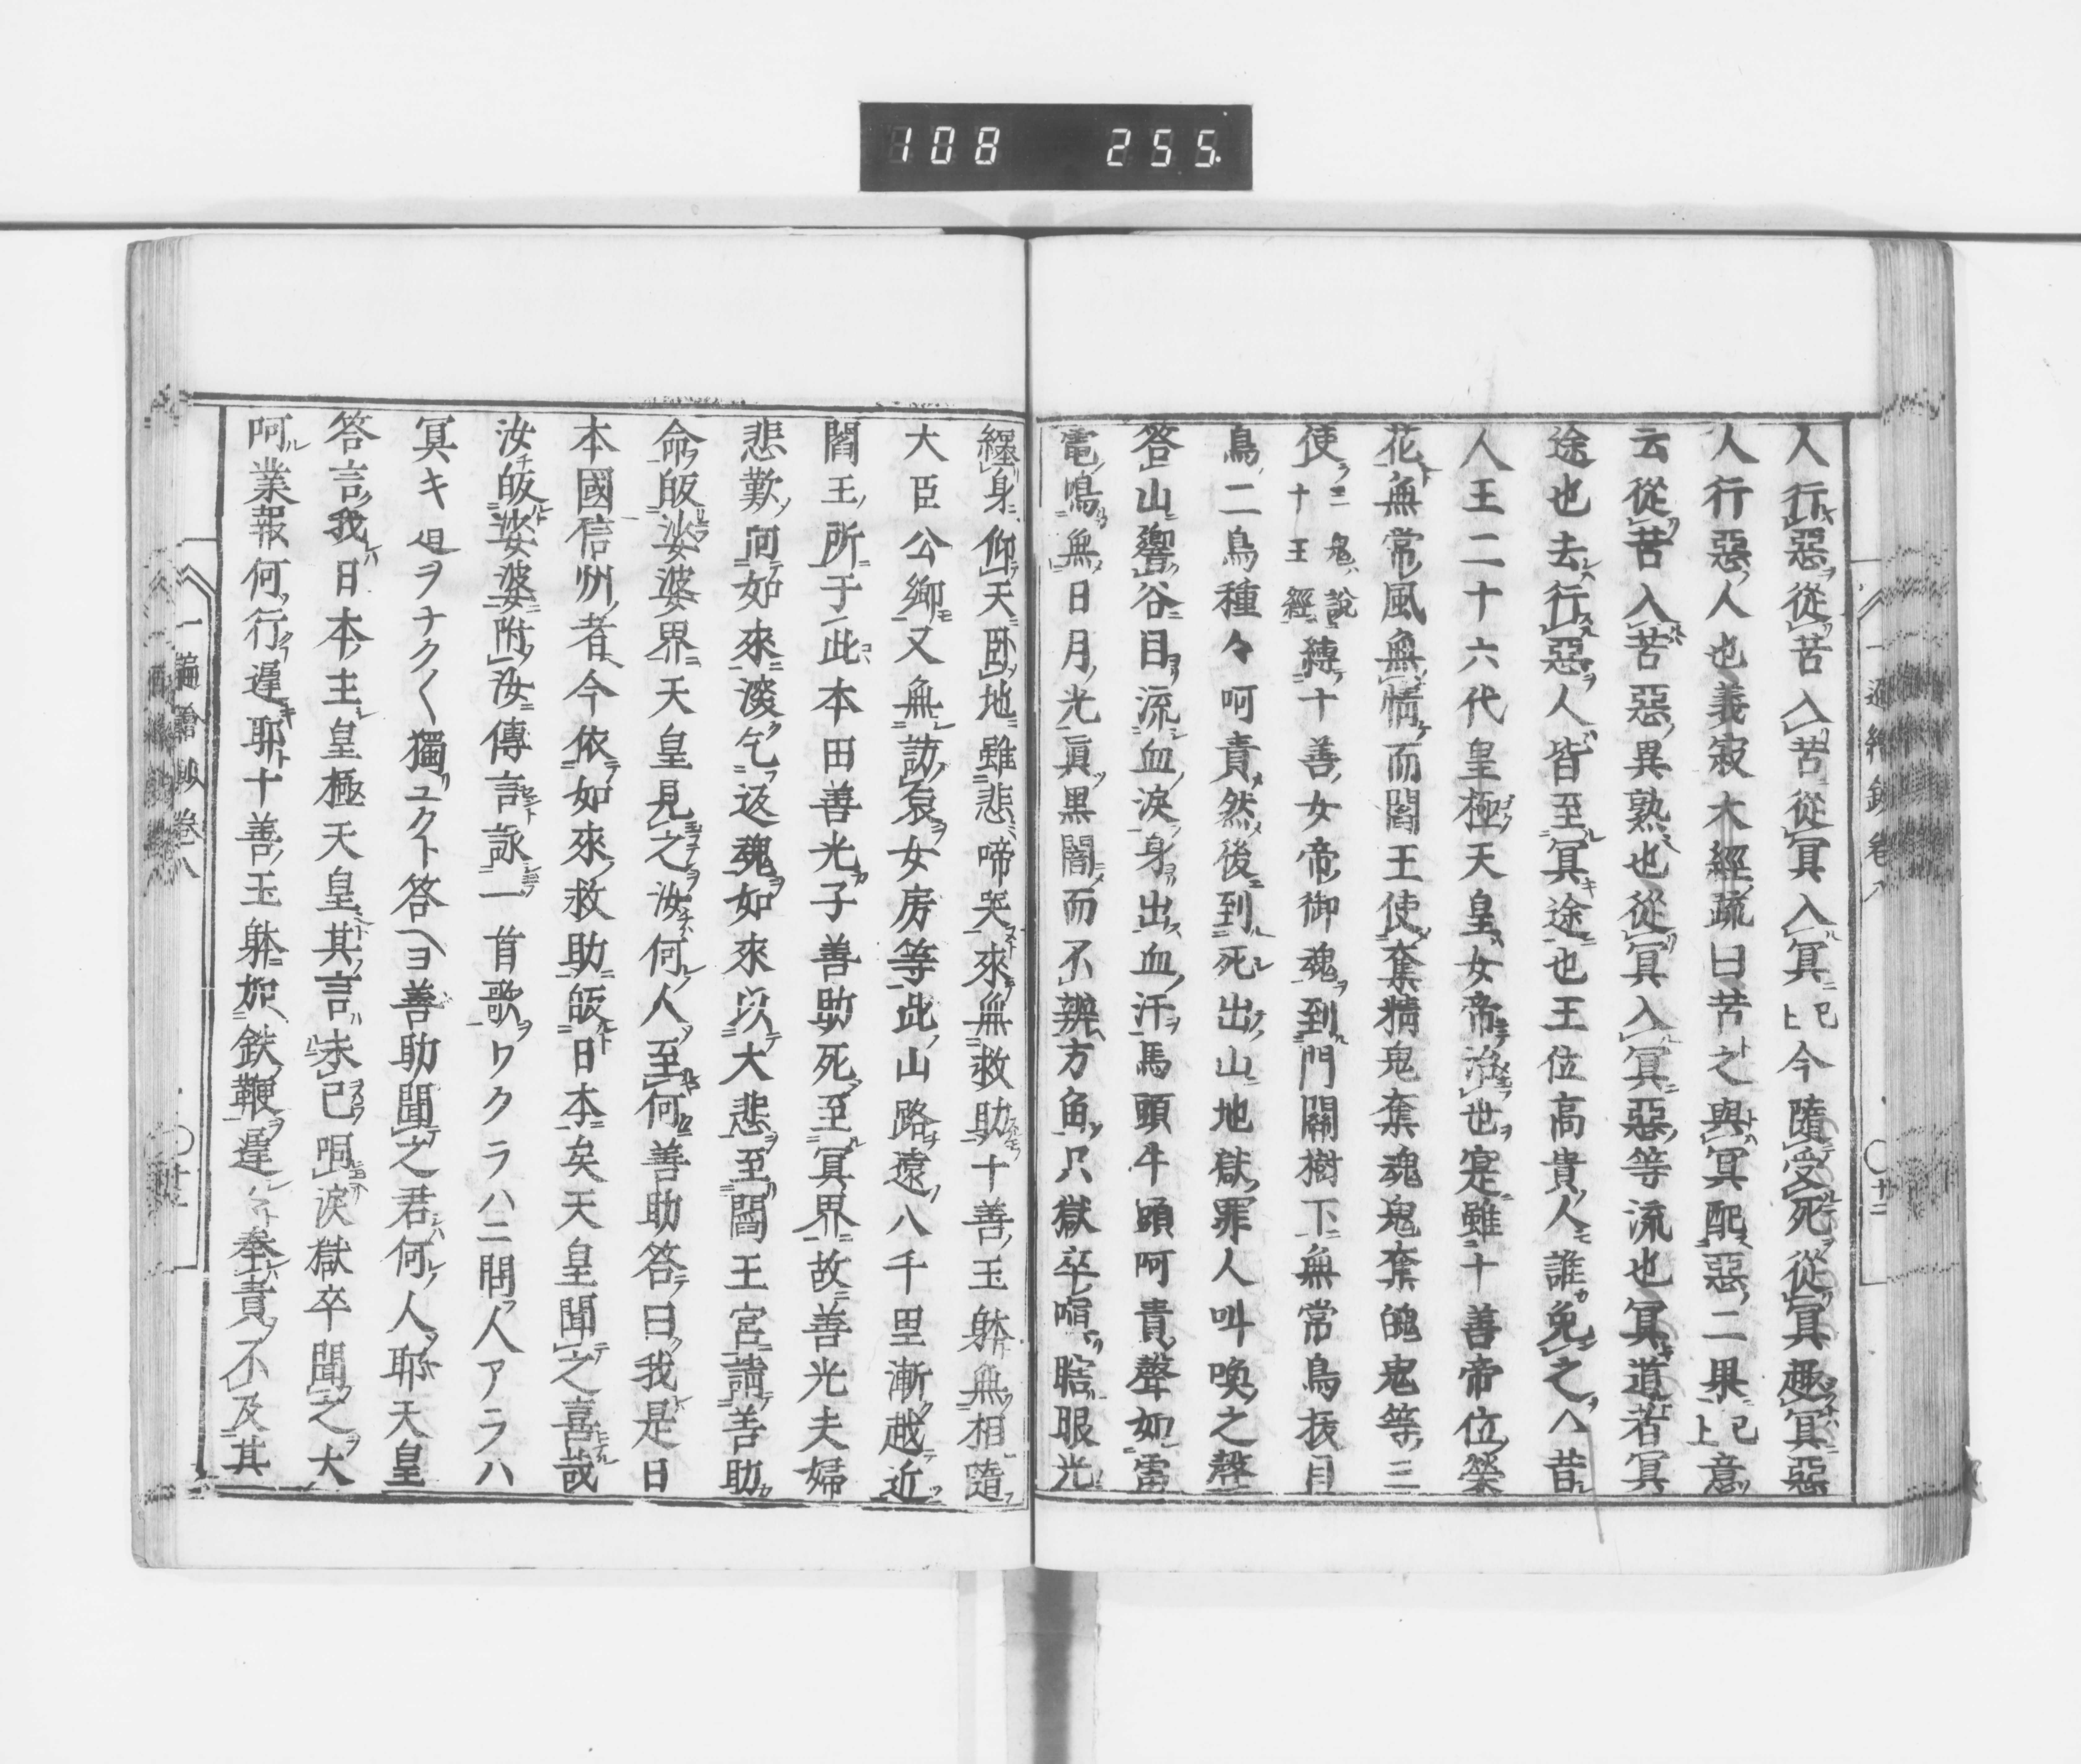 108 255
入行惡從苦入苦從冥入冥已上今隨受死從冥趣冥惡
人行惡人也義寂大經疏曰苦之與冥配惡二果已上意
云從苦入苦惡異熟也從冥入冥惡等流也冥道者冥
途也去行惡人皆至冥途也王位高貴人誰免之ヘ昔
人王二十六代皇極天皇女帝治世寔雖十善帝位榮
花無常風無情而閻王使奪精鬼奪魂鬼奪魄鬼等三
使三鬼說十王經縛十善女帝御魂到門關樹下無常鳥抜目
鳥二鳥種々呵責然後到死出山地獄罪人叫喚之聲
答山響谷目流血淚身出血汗馬頭牛頭呵責聲如雷
電鳴無日月光眞黒闇而不辨方角只獄卒喧瞎眼光
一遍繪鈔卷八
廿二
纏身仰天臥地雖悲啼哭來無救助十善玉躰無相隨
大臣公卿又無訪哀女房等此山路遠八千里漸越近
閻王所于此本田善光子善助死至冥界故善光夫婦
悲歎向如來深乞返魂如來以大悲至閻王宮請善助
命皈娑婆界天皇見之汝何人至何善助答曰我是日
本國信州者今依如來救助皈日本矣天皇聞之喜哉
汝皈娑婆附汝傳言詠一首歌ワクラハニ問人アラハ
冥キ𛂌ヲナク〱獨ユクト答ヘヨ善助聞之君何人耶天皇
答言我日本主皇極天皇其言未已哽淚獄卒聞之大
阿業報何行遲耶十善玉躰加鉄鞭遲〻奉責不及其
一遍繪鈔卷八